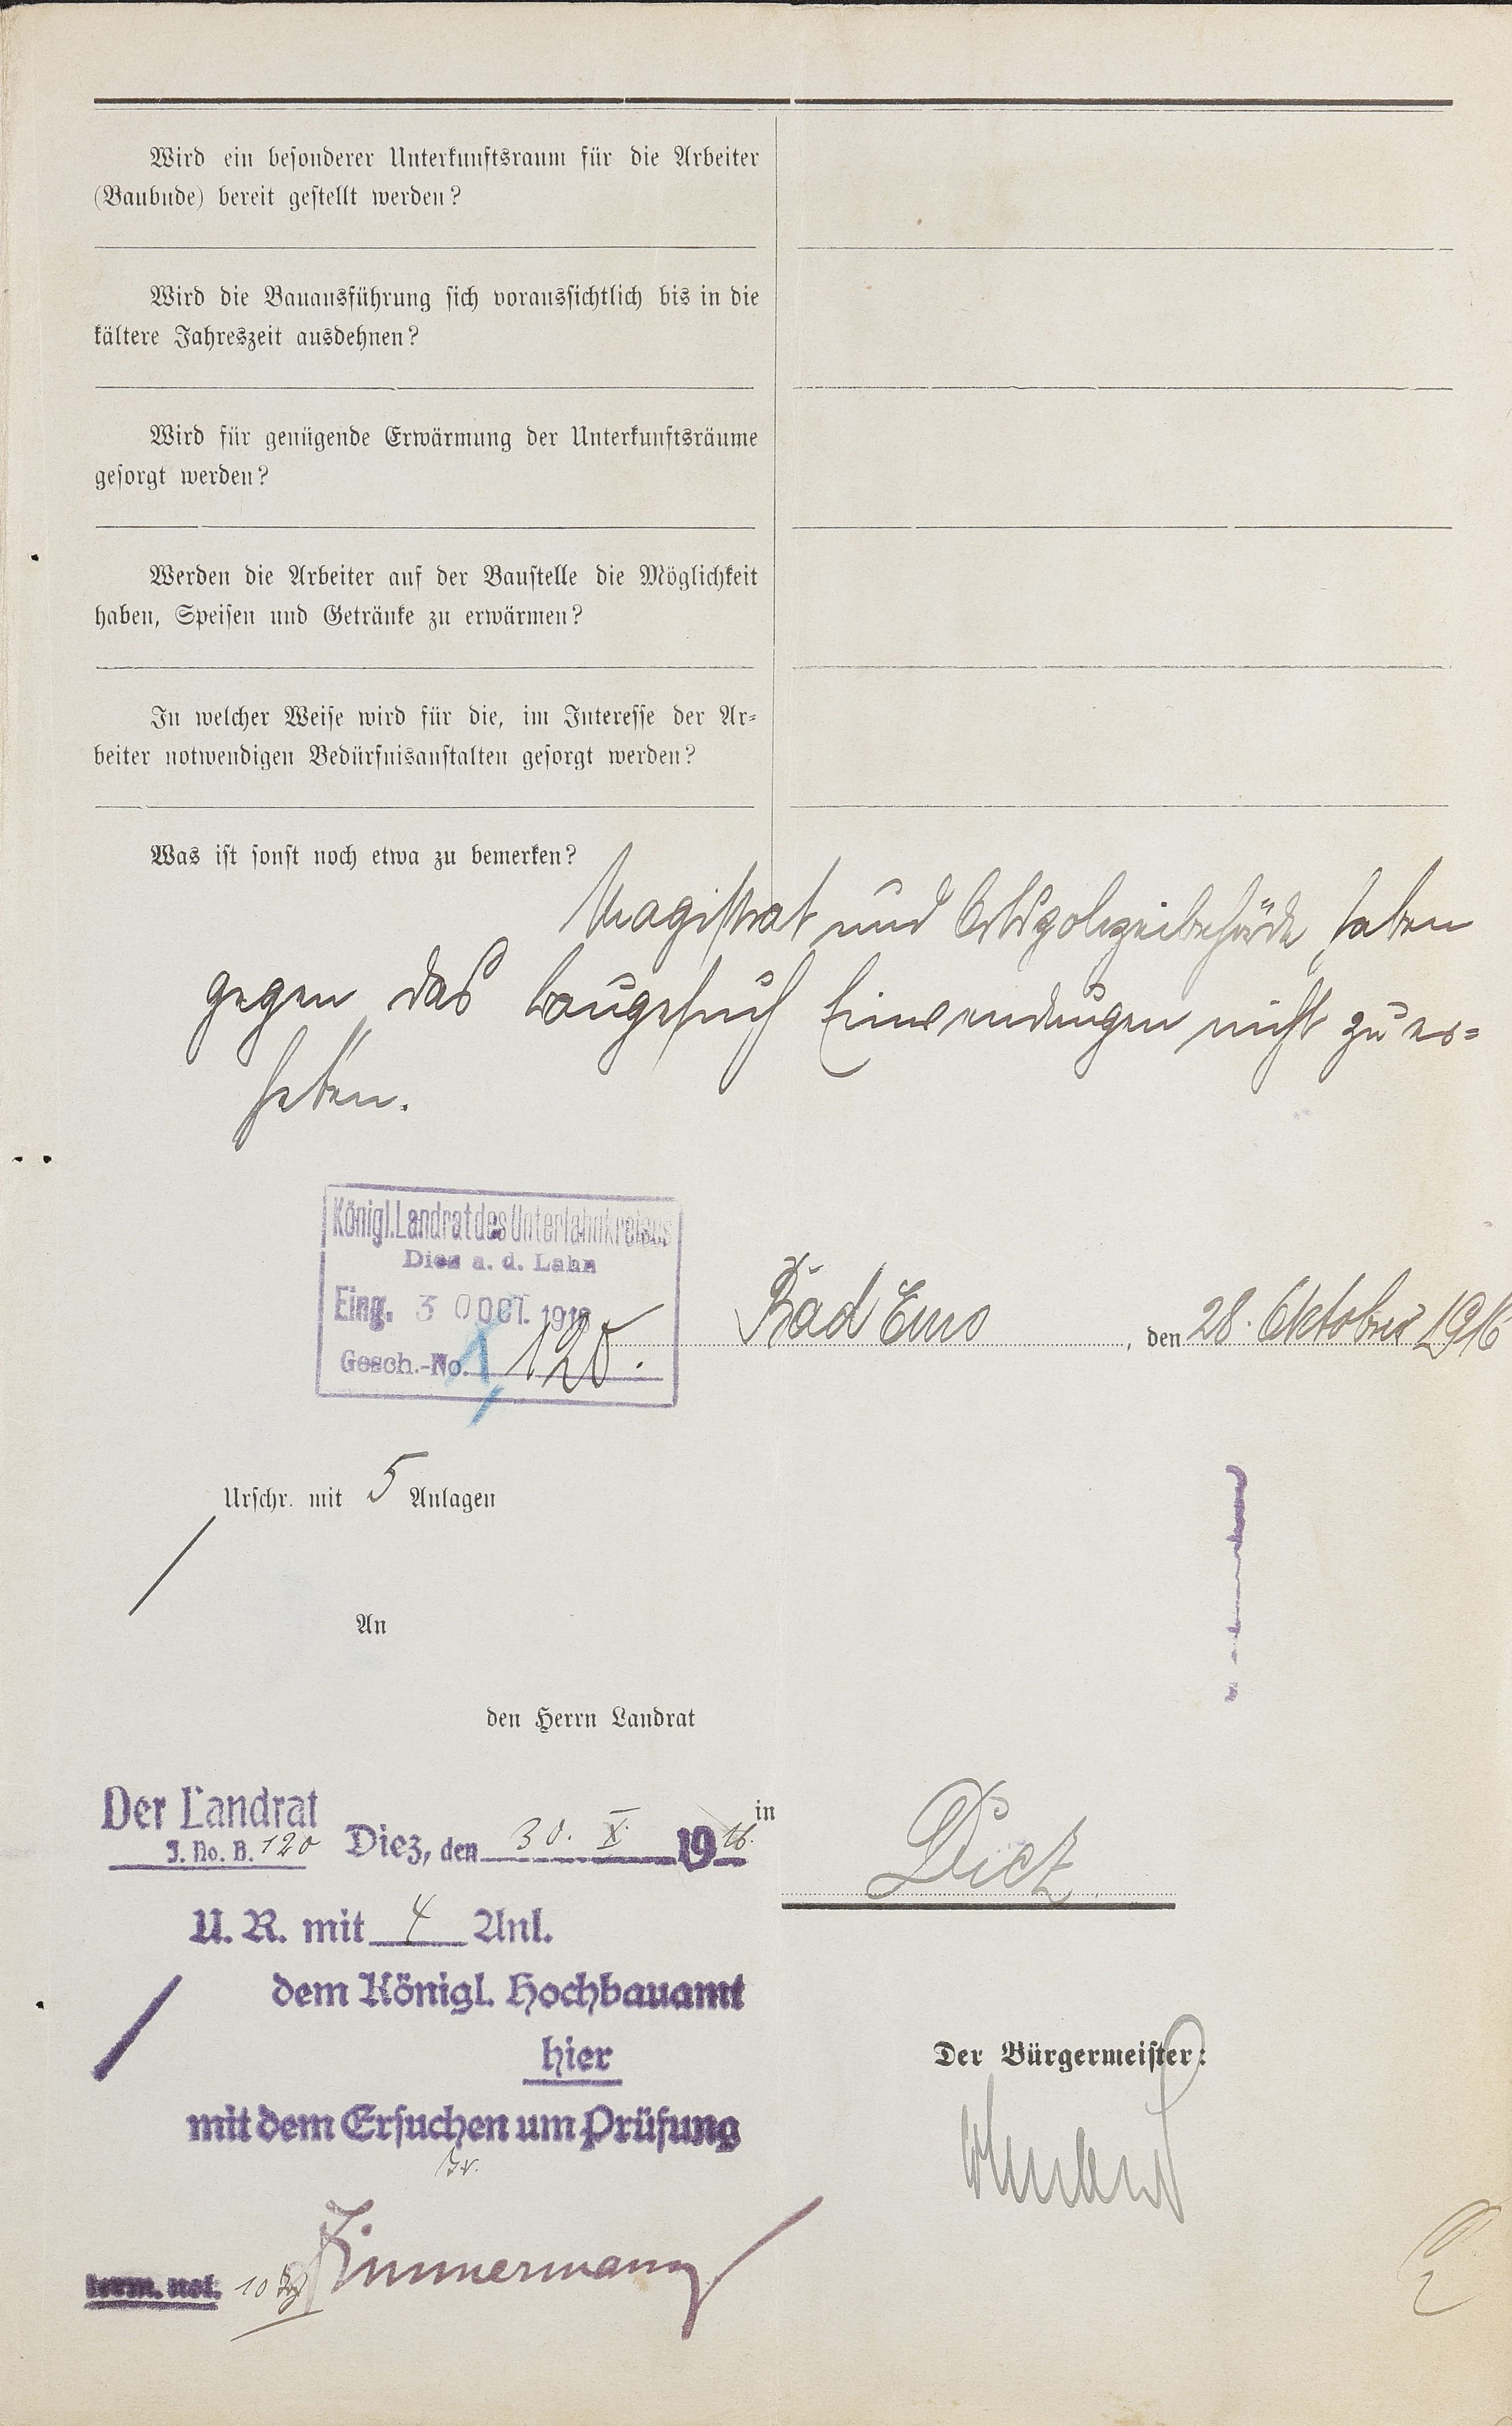 Wird ein besonderer Unterkunftsraum für die Arbeiter
(Baubude) bereit gestellt werden?
Wird die Bauausführung sich voraussichtlich bis in die
kältere Jahreszeit ausdehnen?
Wird für genügende Erwärmung der Unterkunftsräume
gesorgt werden?
Werden die Arbeiter auf der Baustelle die Möglichkeit
haben, Speisen und Getränke zu erwärmen?
In welcher Weise wird für die, im Interesse der Ar-
beiter notwendigen Bedürfnisanstalten gesorgt werden?
Was ist sonst noch etwa zu bemerken?
Magistrat und Ortspolizeibehörde haben
gegen das Baugesuch Einwendungen nicht zu er-
heben.
Königl. Landrat des Unterlahnkreises
Diez a. d. Lahn
Eing. 30 OCT. 1916
Gesch.-No. 120.
Bad Ems, den 28. Oktober 1916
Urschr. mit 5 Anlagen
An
den Herrn Landrat
in
Diez
Der Landrat
J. No. B. 120
Diez, den 30. X. 1916.
U. R. mit 4 Anl.
dem Königl. Hochbauamt
hier
mit dem Ersuchen um Prüfung
Zimmermann
term. not. 10
Der Bürgermeister: